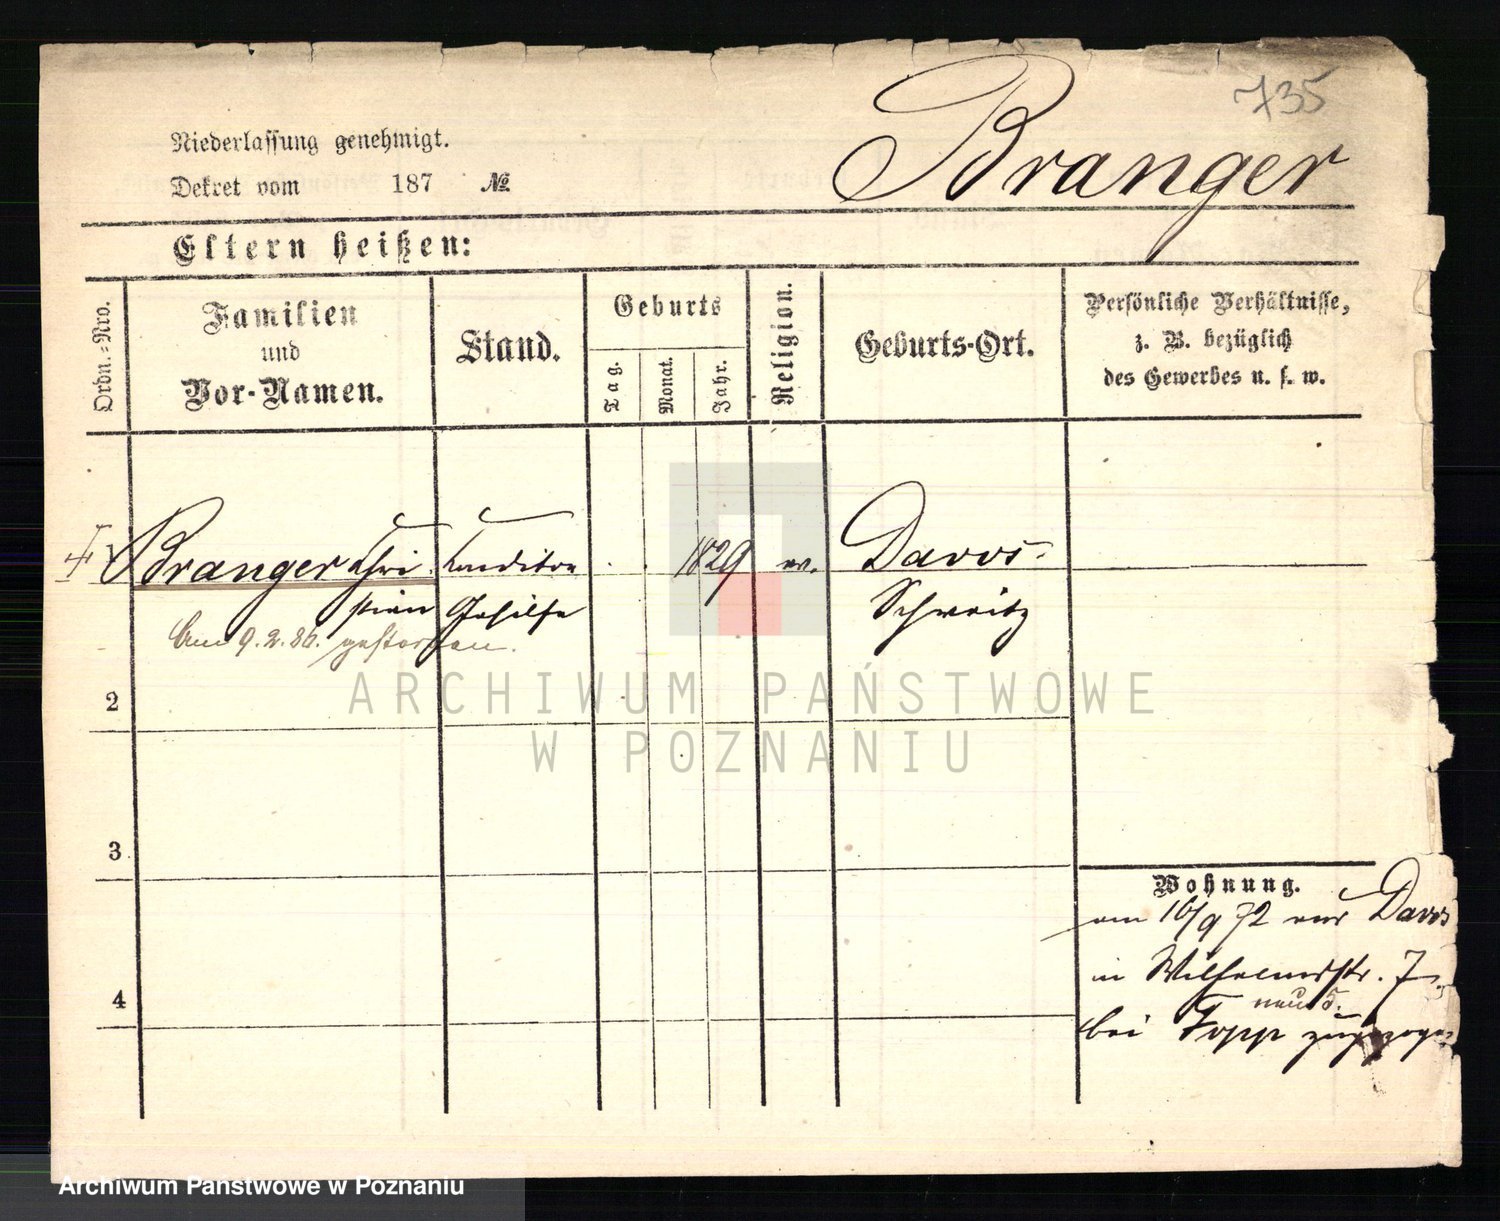 735
Branger
Niederlassung genehmigt.
Dekret vom 187 №
Eltern heißen:
Ordn.-Nro.
Familien
und
Vor-Namen.
Stand.
Geburts
Tag.
Monat.
Jahr.
Religion.
Geburts-Ort.
Persönliche Verhältnisse,
z. B. bezüglich
des Gewerbes u. s. w.
1 Branger Chri- Conditor 1829 ev. Davos.
stian Gehilfe Schweitz
Am 9.2.86. gestorben.
2
3
4
Wohnung.
am 16/9 72 aus Davos
in Wilhelmstr. 7.
neu 5.
bei Topp zugezogen
ARCHIWUM PAŃSTWOWE
W POZNANIU
Archiwum Państwowe w Poznaniu